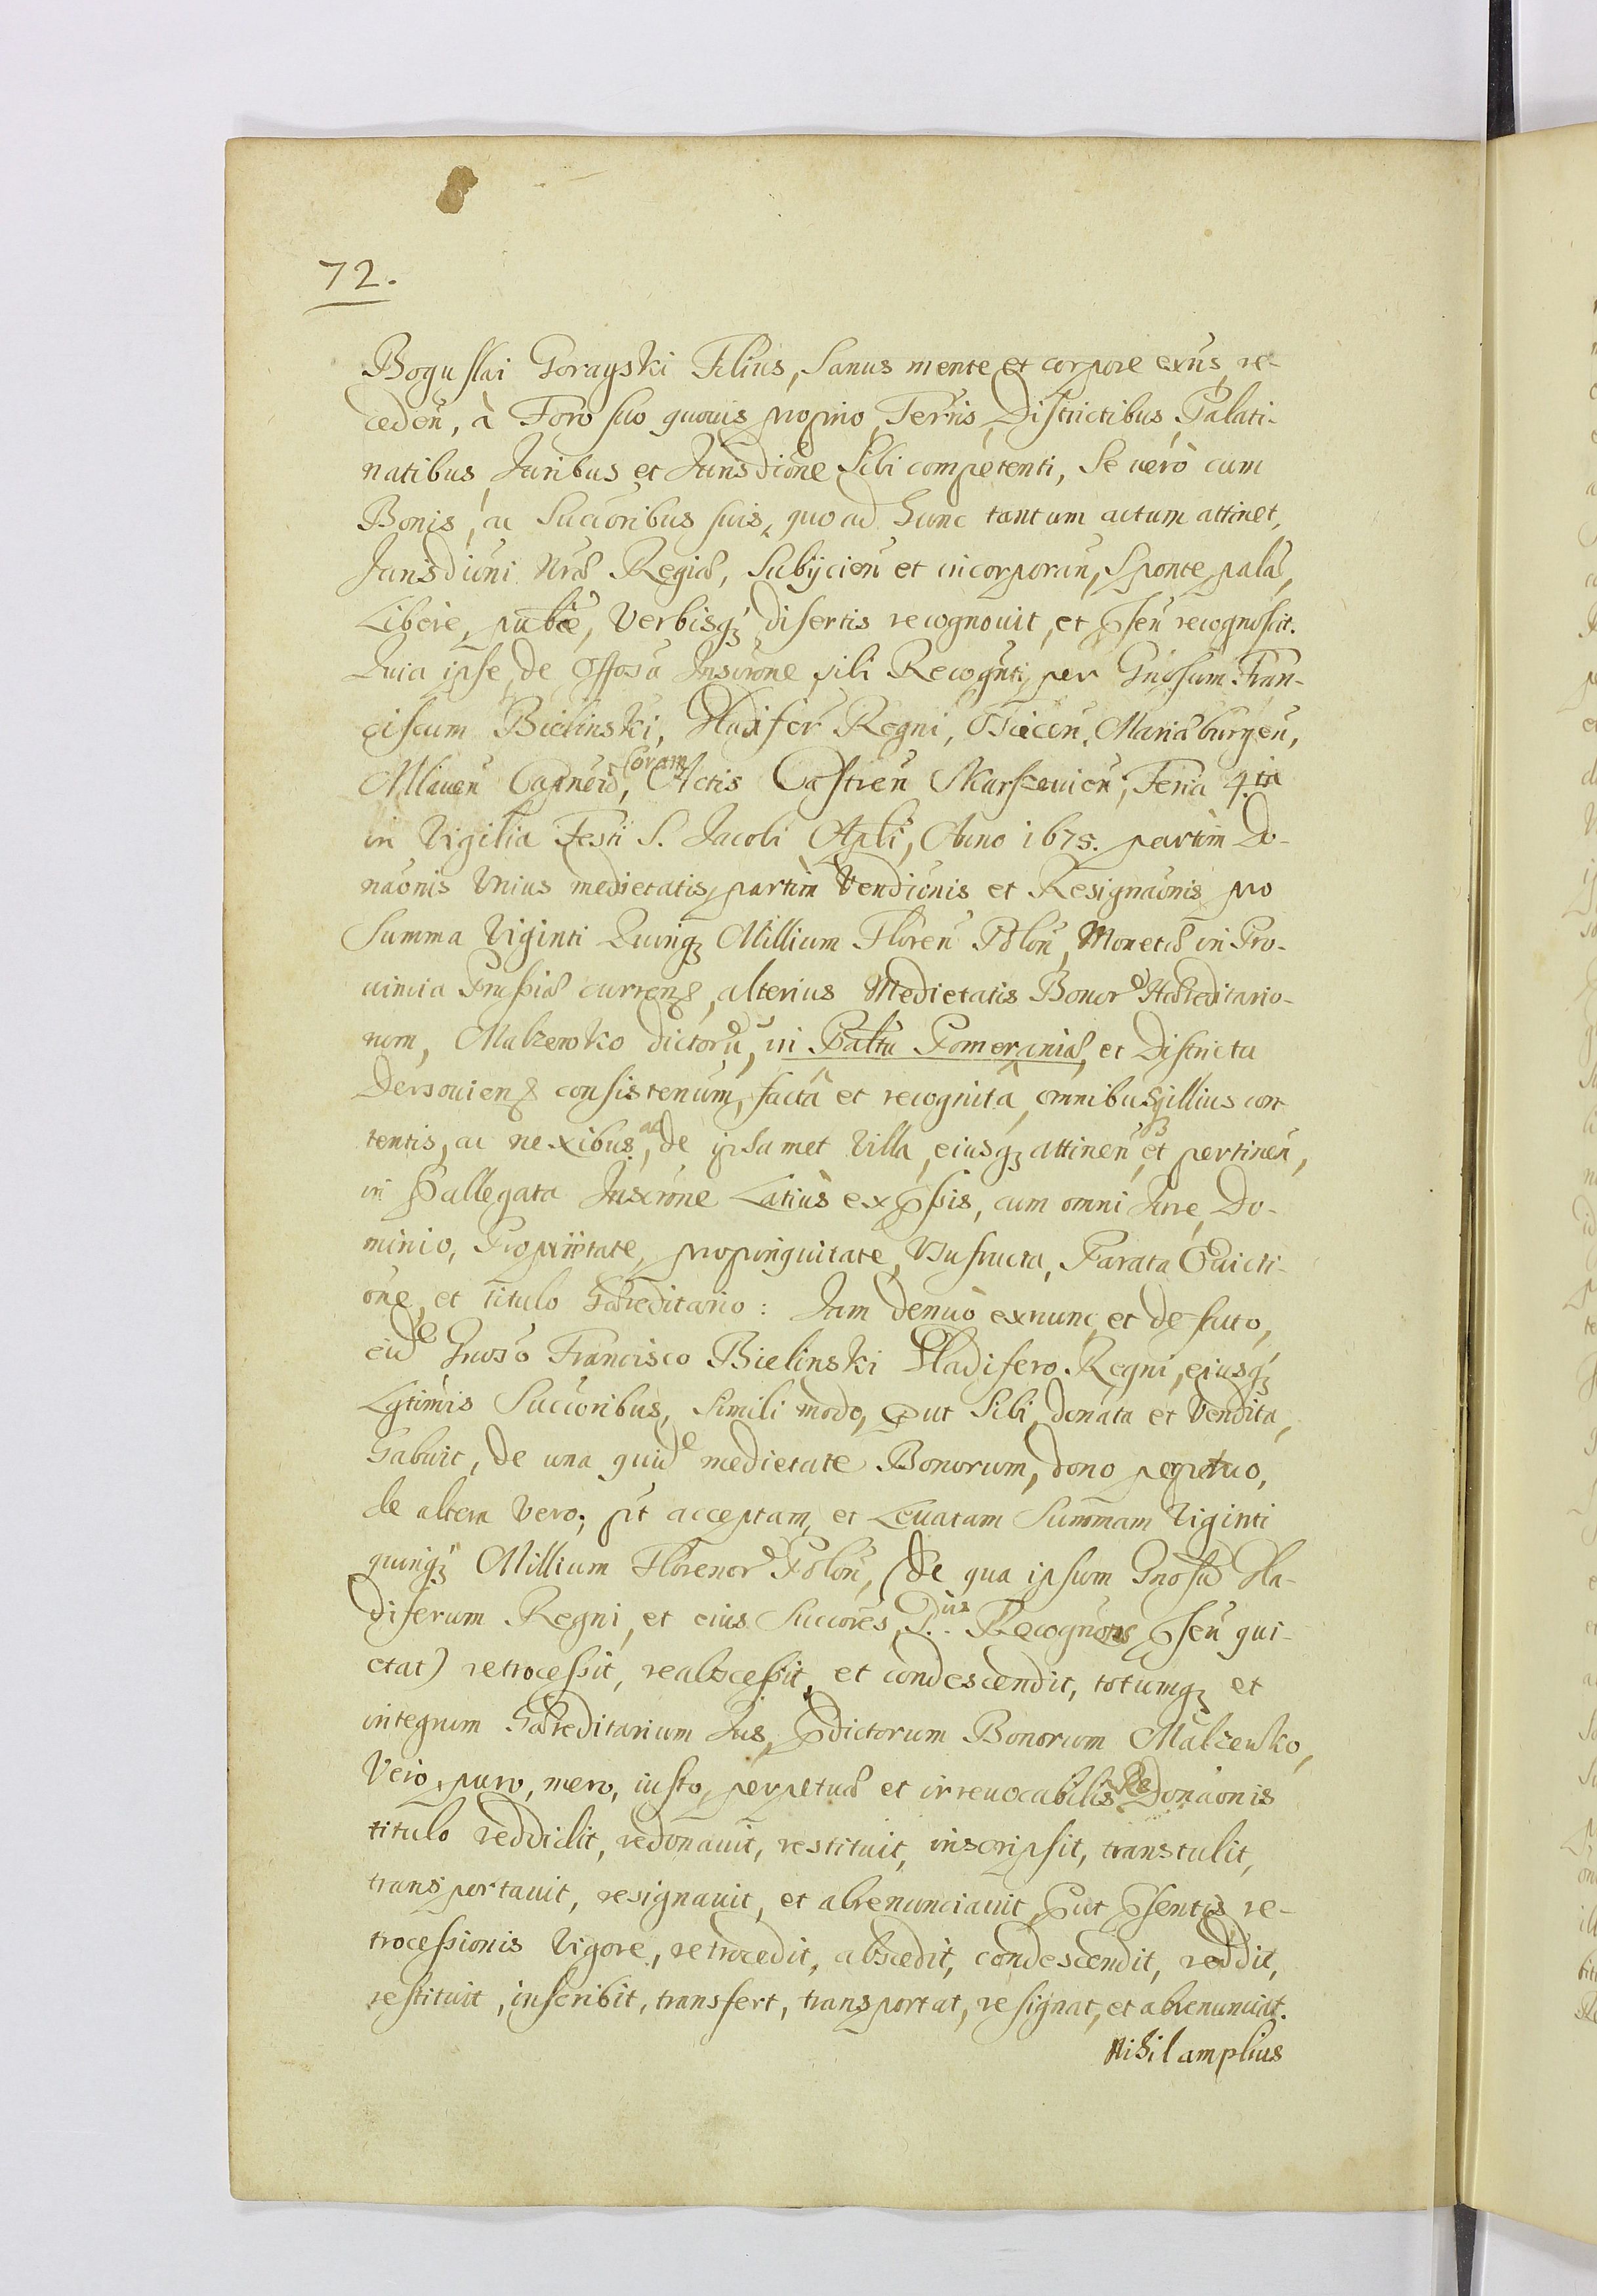 72.
Boguslai Gorayski Filius, Sanus mente et corpore exns, re-
ceden, à Foro suo quouis proprio, Terris, Districtibus, Palati-
natibus, Juribus et Jurisdióne Sibi competenti, Se verò cum
Bonis, ac Succoribus suis, quo ad hunc tantum actum attinet,
Jurisdióni Nræ Regiæ, Subijcien et incorporan, Sponte, palã,
Libere, publcé, Verbisqȝ disertis recognouit, et pñsen recognoscit.
Quia ipse, de Inscróne sibi Recognti, per Gnosum Fran-
ciscum Bielinski, Gladifer Regni, Osiecen, Mariæburgen,
Mlauen Capneũ, Coram Actis Castren Skarszeuien, Feria 4.ta
in Vigilia Festi S. Jacobi Apli, Anno 1675. partim Do-
naónis Vnius medietatis, partim Vendiónis et Resignaónis pro
Summa Viginti Quinqȝ Millium Floren Polon, Monetæ in Pro-
uincia Prussiæ curren, alterius Medietatis Bonor Hæreditario-
rum, Malzewko dictorũ, in Paltu Pomeraniæ, et Districtu
Dersouien consistenum, factâ et recognitâ, omnibusqȝ illius con
tentis, ac nexibus, ac de ipsamet Villa, eiusqȝ attinen et pertinen,
in pallegata Inscróne Latius expssis, cum omni Jure, Do-
minio, Proprietate, propinquitate, Vsufructu, Parata Euicti-
one, et titulo Hæreditario: Jam denuò exnunc, et de facto,
eid Gnoso Francisco Bielinski Gladifero Regni, eiusqȝ
Lgtimis Succoribus, Simili modo, put Sibi, donata et Vendita,
habuit, de una quid medietate Bonorum, dono perpetuo,
de altera Vero, pt acceptam, et Leuatam Summam Viginti
quinqȝ Millium Florenor Polon, (de qua ipsum Gnosũ Gla-
diferum Regni, et eius Succores, D.nus Recognons pñsen qui-
etat) retrocessit, reabscessit, et condescendit, totumqȝ et
integrum Hæreditarium Jus, pdictorum Bonorum Malzewko,
Vero, puro, mero, iusto, perpetuæ et irreuocabilis Re Donaónis
titulo reddidit, redonauit, restituit, inscripsit, transtulit,
transportauit, resignauit, et abrenunciauit, put pñsentis re-
trocessionis Vigore, retrocedit, abscedit, condescendit, reddit,
restituit, inscribit, transfert, transportat, resignat, et abrenunciat.
Nihil amplius